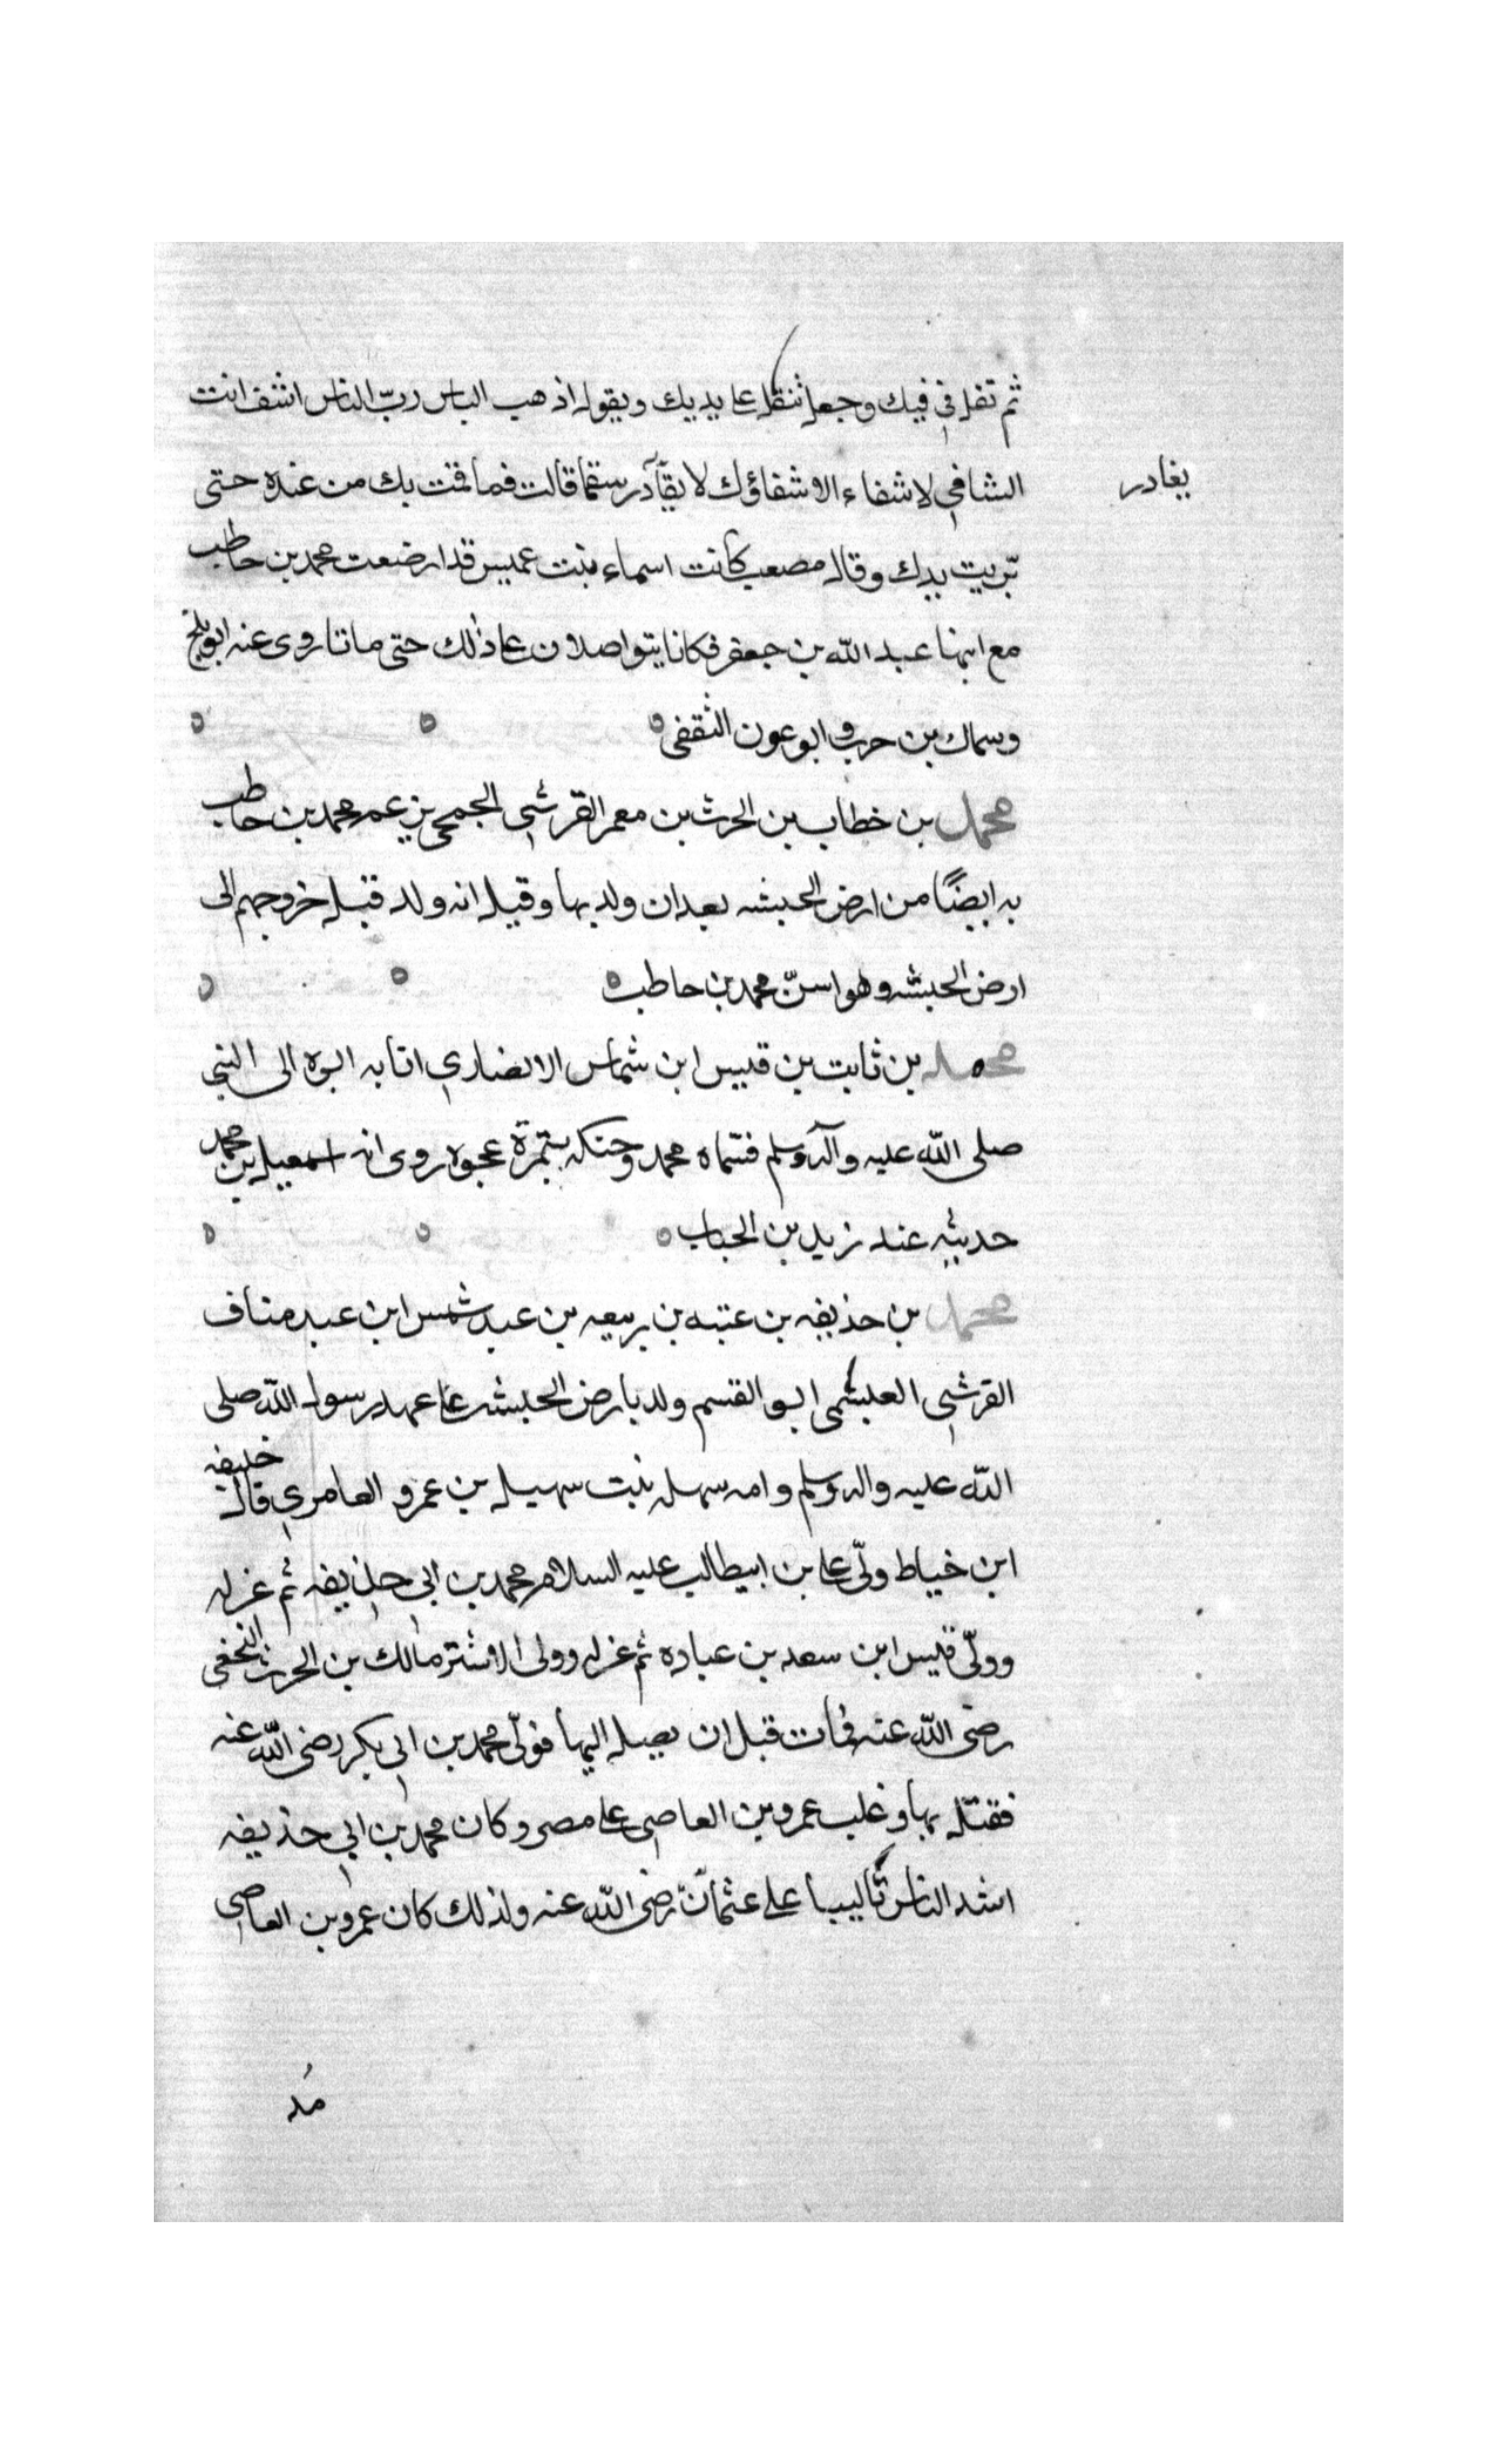 ثم تفل في فيك وجعل تتفل على يديك ويقول اذهب الباس ربّ الناس اشف انت
الشافي لا شفاء الا شفاؤك لا يقادر سقما قالت فما قمت بك من عنده حتى
يغادر
بريت يدك وقال مصعب كانت اسماء بنت عميس قد ارضعت محمد بن حاطب
مع ابنها عبد الله بن جعفر فكانا يتواصلان على ذلك حتى ماتا روى عنه ابو بلج
وسماك بن حرب وابو عون الثقفى
محمد بن خطاب بن الحرث بن معمر القرشي الجمحي بن عم محمد بن حاطب
به ايضًا من ارض الحبشه بعد ان ولد بها وقيل انه ولد قبل خروجهم الى
ارض الحبشه وهو اسنّ محمد بن حاطب
محمد بن ثابت بن قيس ابن شماس الانصاري اتا به ابوه الى النبي
صلى الله عليه وآله وسلم فسّماه محمد وحنكه بتمرة عجوه روى انه اسمعيل بن محمد
حديثه عند زيد بن الحباب
محمد بن حذيفه بن عتبه بن ربيعه بن عبد شمس ابن عبد مناف
القرشي العبشمى ابو القسم ولد بارض الحبشه على عهد رسول الله صلى
الله عليه واله وسلم وامه سهله بنت سهيل بن عمرو العامري قال خليفه
ابن خياط ولّى على بن ابيطالب عليه السلام محمد بن ابي حذيفه ثم عزله
وولّى قيس ابن سعد بن عباده ثم عزله وولى الاشتر مالك بن الحرث النخعى
رضى الله عنه فمات قبل ان يصل اليها فولّى محمد بن ابي بكر رضى الله عنه
فقتل بها وغلب عمرو بن العاصي على مصر وكان محمد بن ابي حذيفه
اشد الناس تاليبا على عثمان رضى الله عنه ولذلك كان عمرو بن العاصى